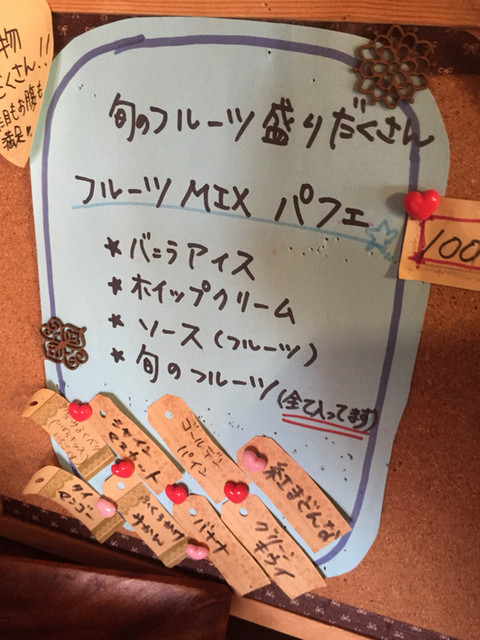 物
たくさん!!
目もお腹も
満足!!
旬のフルーツ盛りだくさん
フルーツMIX パフェ
100
★バニラアイス
★ホイップクリーム
★ソース(フルーツ)
★旬のフルーツ(全て入ってます)
シャイン
マスカット
ゴールデン
パイン
紅まどんな
タイ
マンゴー
みかん
バナナ
グリーン
キウイ